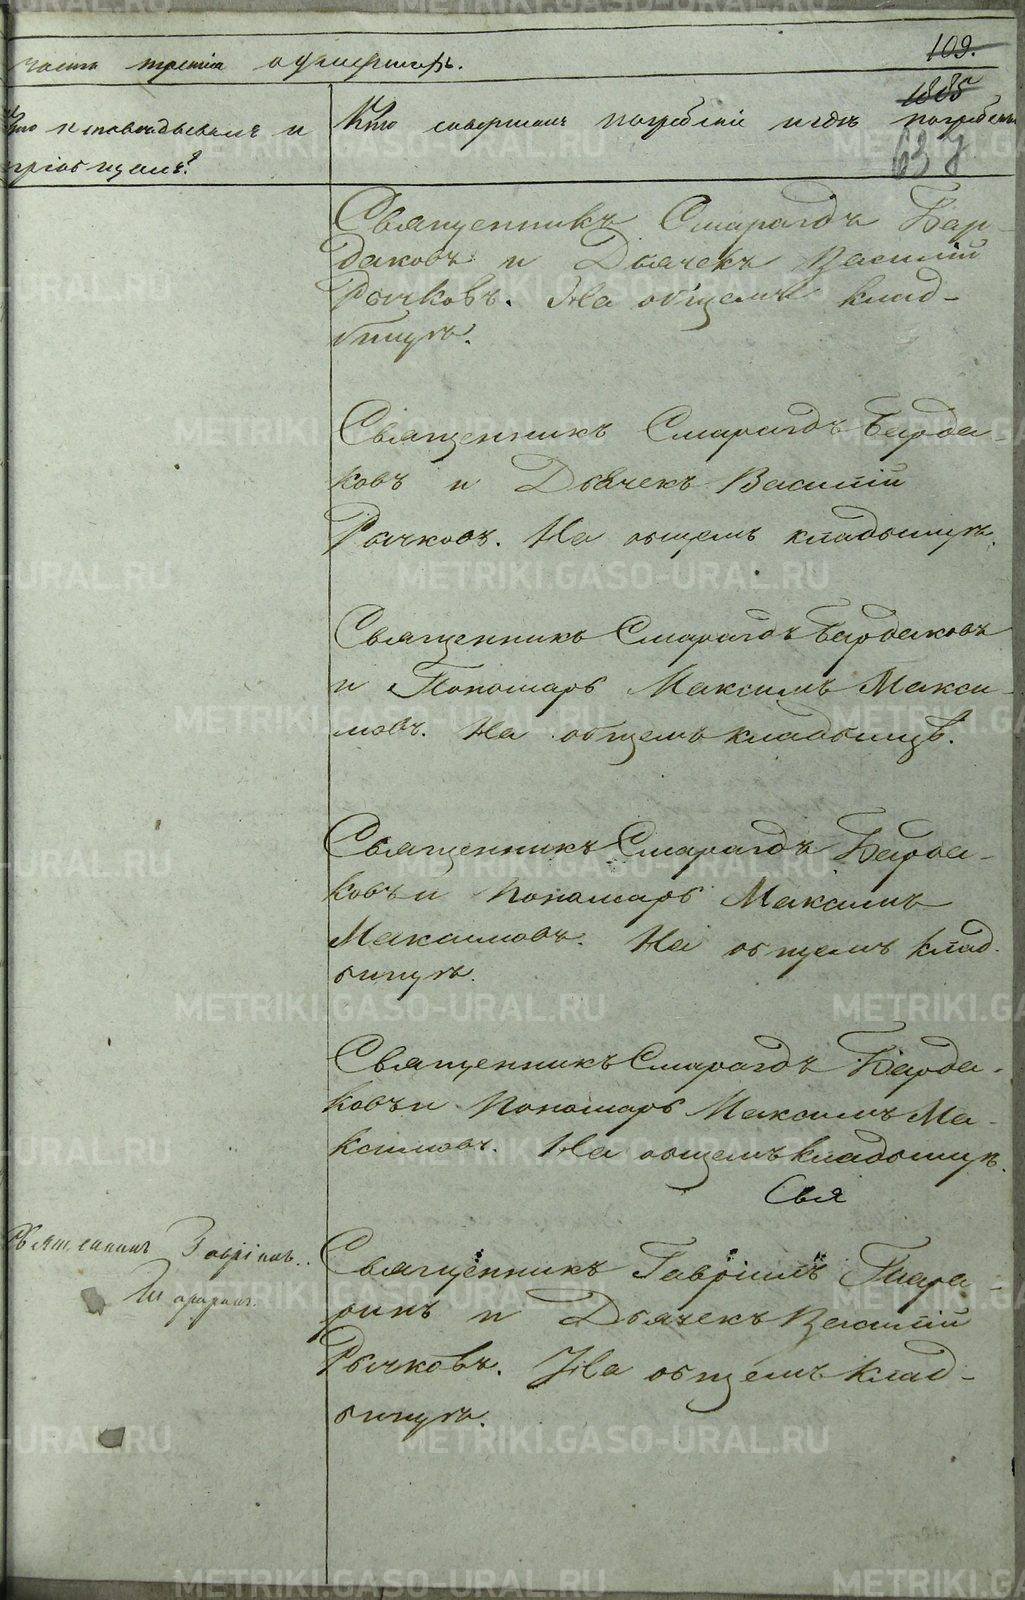 часть третія о умершихъ.
109.
1885
Кто исповѣдывалъ и
пріобщалъ?
Кто совершалъ погребеніе и гдѣ погребены
Священникъ Смарагдъ Бар-
даковъ и Дьячекъ Василій
Рычковъ. На общемъ клад-
бищѣ.
Священникъ Смарагдъ Барда-
ковъ и Дьячекъ Василій
Рычковъ. На общемъ кладбищѣ.
Священникъ Смарагдъ Бардаковъ
и Пономарь Максимъ Макси-
мовъ. На общемъ кладбищѣ.
Священникъ Смарагдъ Барда-
ковъ и Пономарь Максимъ
Максимовъ. На общемъ клад-
бищѣ.
Священникъ Смарагдъ Барда-
ковъ и Пономарь Максимъ Ма-
ксимовъ. На общемъ кладбищѣ.
Свя
Священникъ Гавріилъ
Священникъ Гавріилъ
ринъ и Дьячекъ Василій
Рычковъ. На общемъ клад-
бищѣ.
METRIKI.GASO-URAL.RU